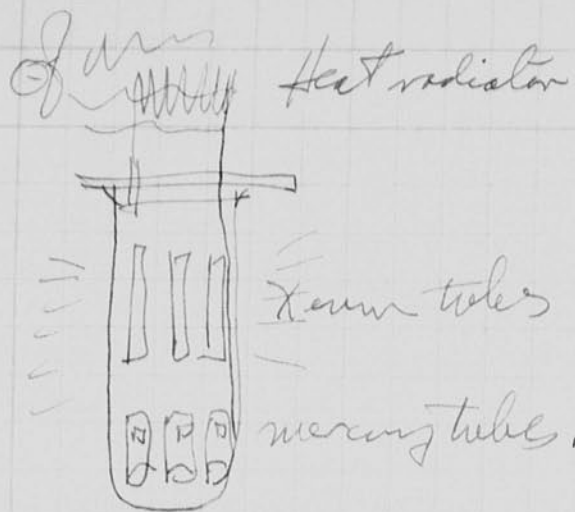 Heat radiator
Xenon tubes
mercury tubes.